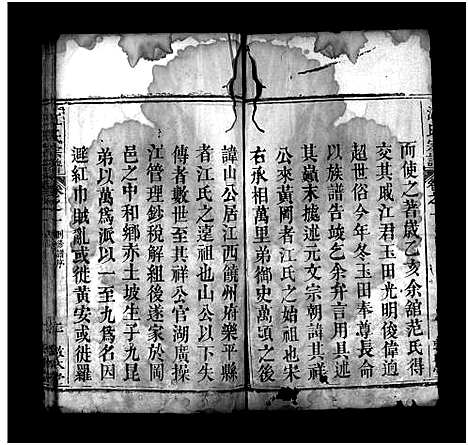 江氏宗譜
而使之著歲乙亥余舘范氏得
交其戚江君玉田光明俊偉迥
超世俗今年冬玉田奉尊長命
以族譜告竣乞余弁言用其述
其巔末攄述元文宗朝諱其祥
公來黃岡者江氏之始祖也宋
右丞相萬里弟御史萬頃之後
諱山公居江西饒州府樂平縣
者江氏之遠祖也山公以下失
傳者數世至其祥公官湖廣探
江管理鈔稅解組後遂家於岡
邑之中和鄉赤土坡生子九昆
弟以萬爲派以一至九爲名因
避紅巾賊亂或徙黃安或徙羅
江氏宗譜
卷之